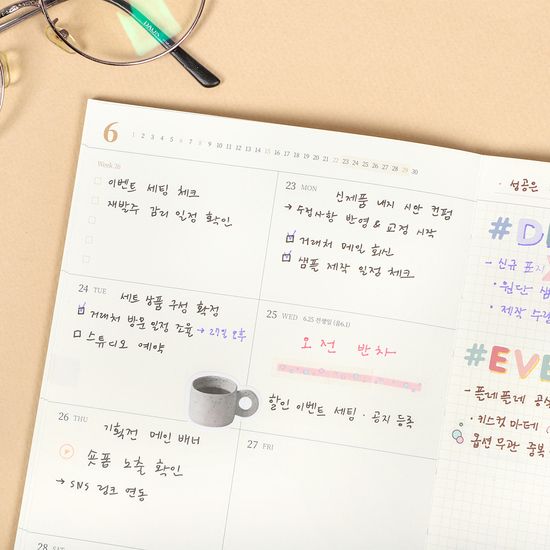 6
1 2 3 4 5 6 7 8 9 10 11 12 13 14 15 16 17 18 19 20 21 22 23 24 25 26 27 28 29 30
Week 26
이벤트 세팅 체크
재발주 감리 일정 확인
23 MON
신제품 내지 시안 컨펌
→ 수정사항 반영 & 교정 시작
거래처 메일 회신
샘플 제작 일정 체크
24 TUE
세트 상품 구성 확정
거래처 방문 일정 조율 → 27일 오후
스튜디오 예약
25 WED 6.25 전쟁일 (음6.1)
오전 반차
할인 이벤트 세팅 · 공지 등록
26 THU
기획전 메인 배너
숏폼 노출 확인
→ SNS 링크 연동
27 FRI
28 SAT
· 성공은
#D
- 신규 표지
· 원단· 샘
· 제작 수량
#EVE
- 플레플레 공식
· 키스컷 마데
옵션 무관 중복